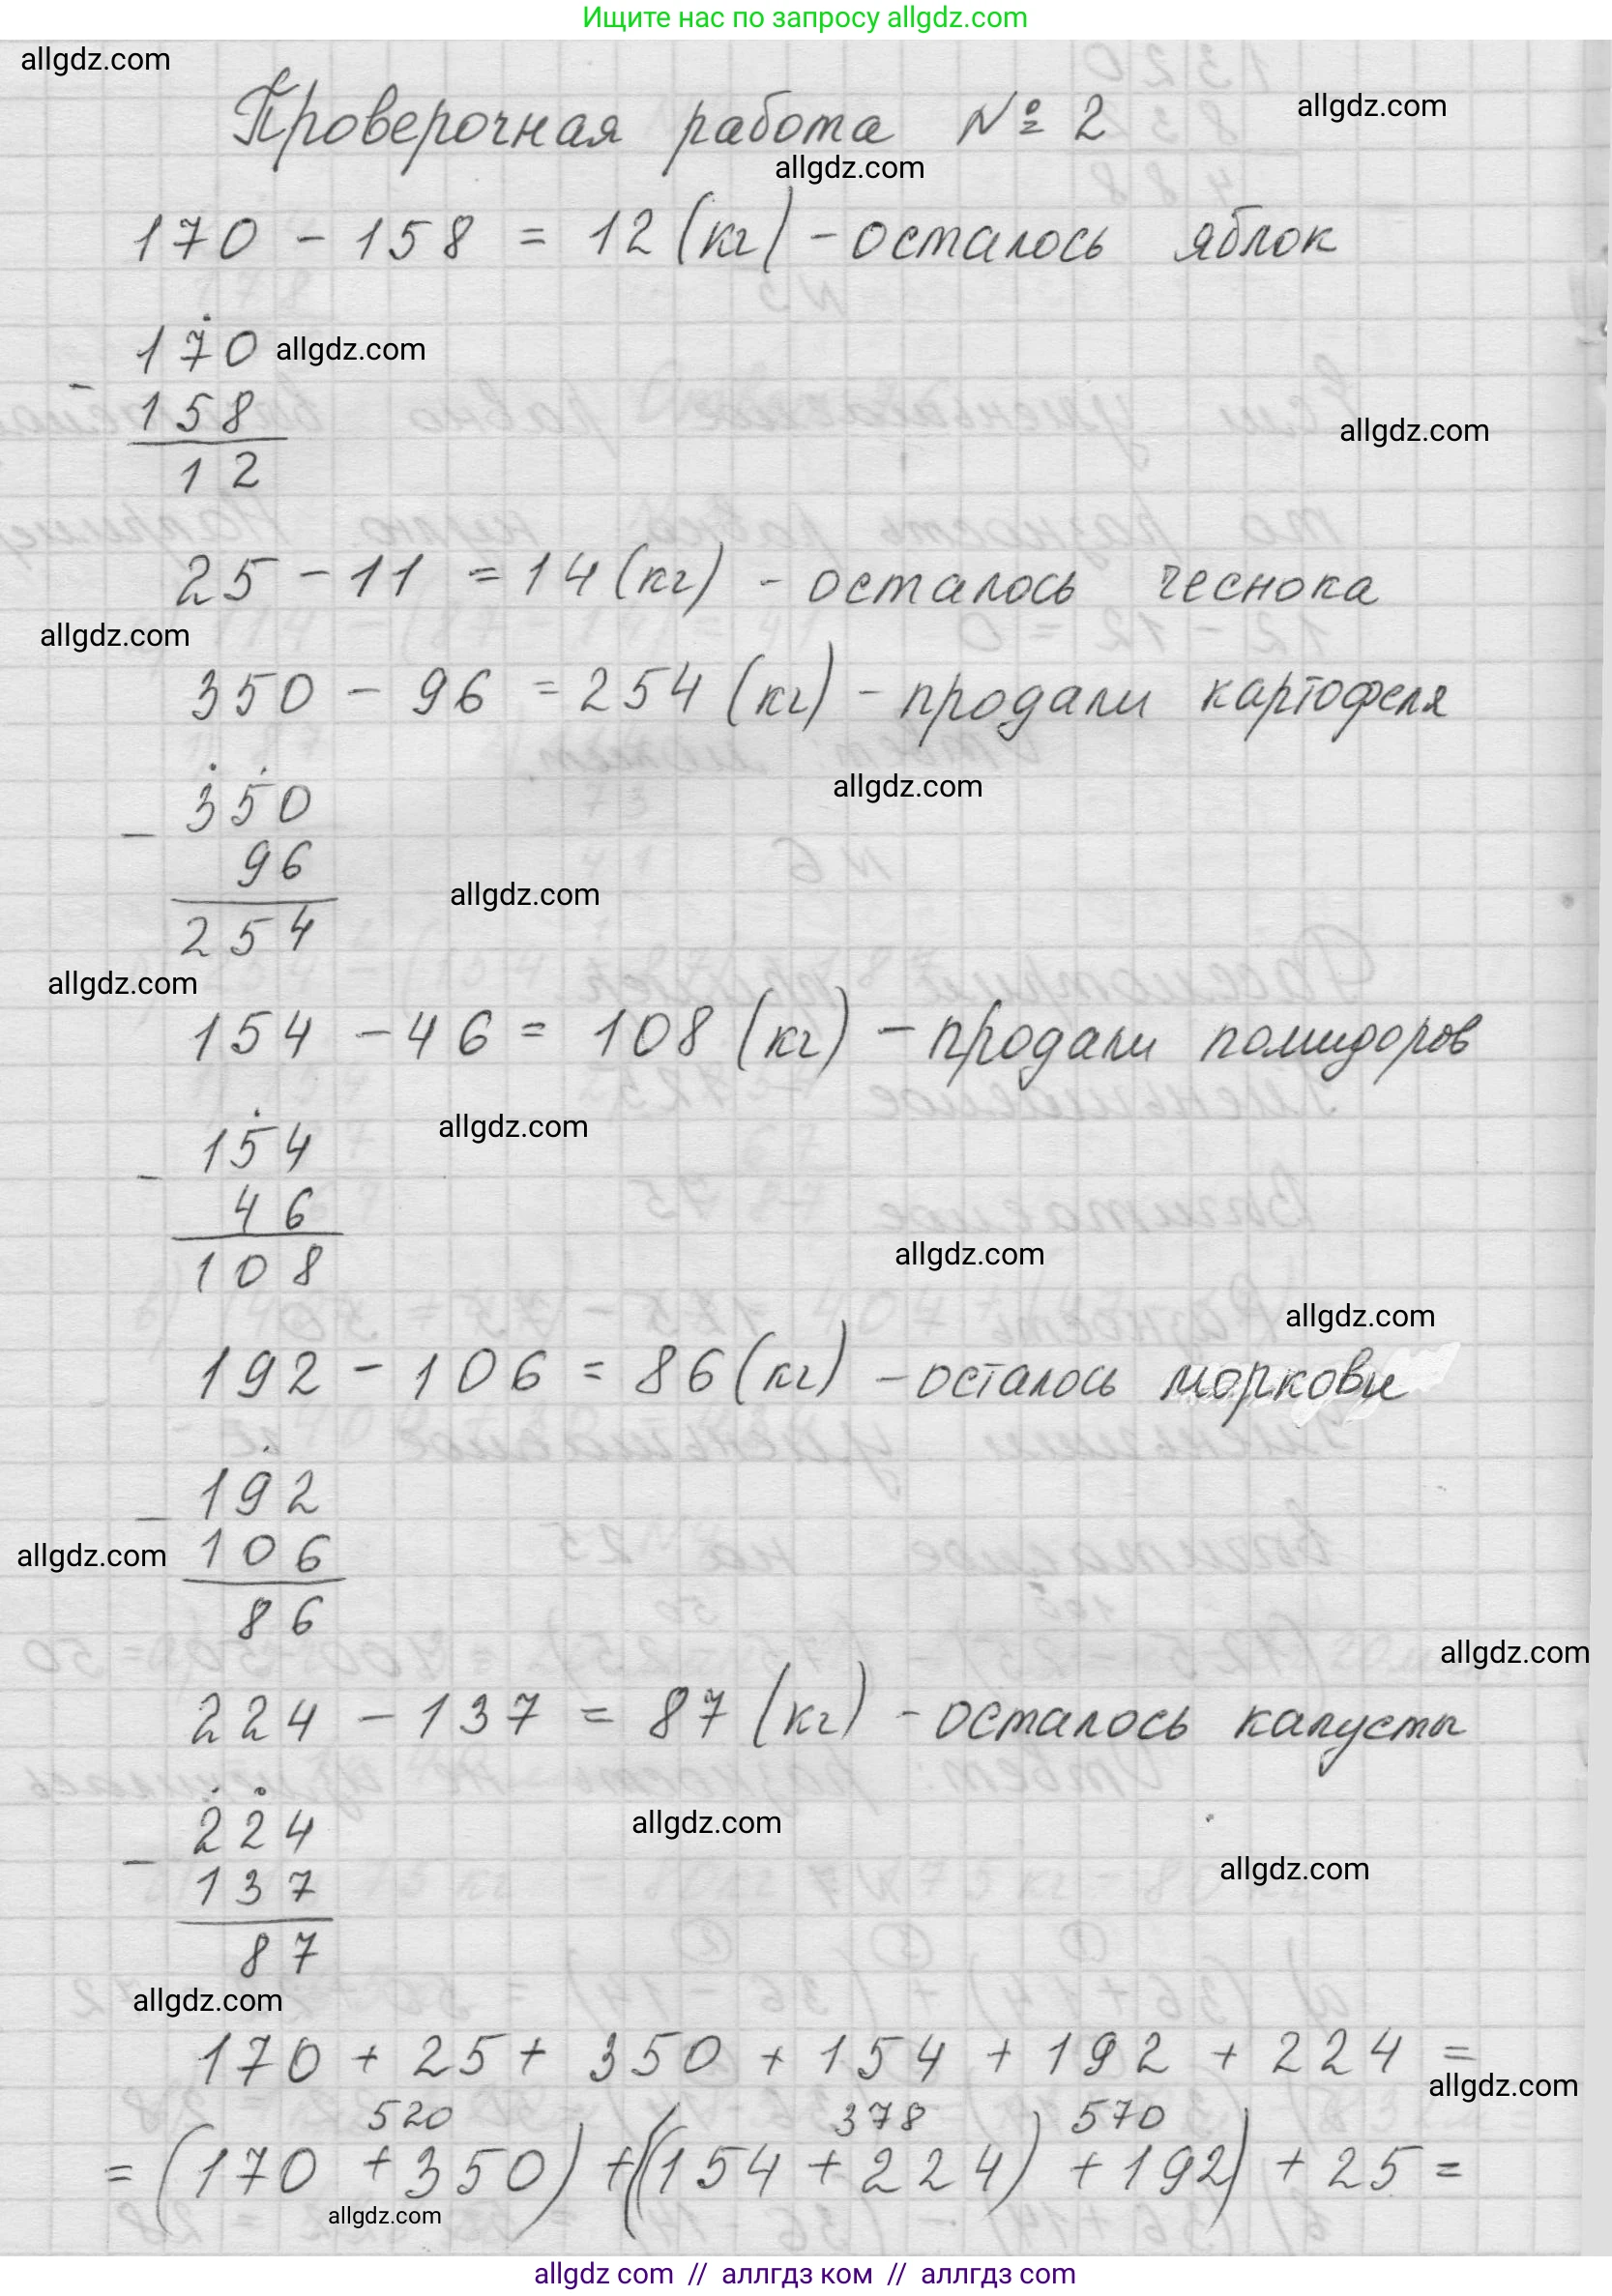 Ищите нас по запросу allgdz.com
allgdz.com
Проверочная работа № 2
allgdz.com
allgdz.com
170 - 158 = 12 (кг) - осталось яблок
170
allgdz.com
-
158
allgdz.com
12
25 - 11 = 14 (кг) - осталось чеснока
allgdz.com
350 - 96 = 254 (кг) - продали картофеля
allgdz.com
350
-
96
allgdz.com
254
allgdz.com
154 - 46 = 108 (кг) - продали помидоров
allgdz.com
154
-
46
allgdz.com
108
allgdz.com
192 - 106 = 86 (кг) - осталось моркови
192
-
106
allgdz.com
86
allgdz.com
224 - 137 = 87 (кг) - осталось капусты
224
allgdz.com
-
137
allgdz.com
87
allgdz.com
170 + 25 + 350 + 154 + 192 + 224 =
allgdz.com
520 378 570
= (170 + 350) + ((154 + 224) + 192) + 25 =
allgdz.com
allgdz com // аллгдз ком // аллгдз com